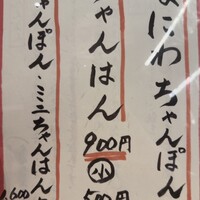 なにわちゃんぽん
ちゃんはん
900円
小
500円
ちゃんぽん・ミニちゃんはん
1,600